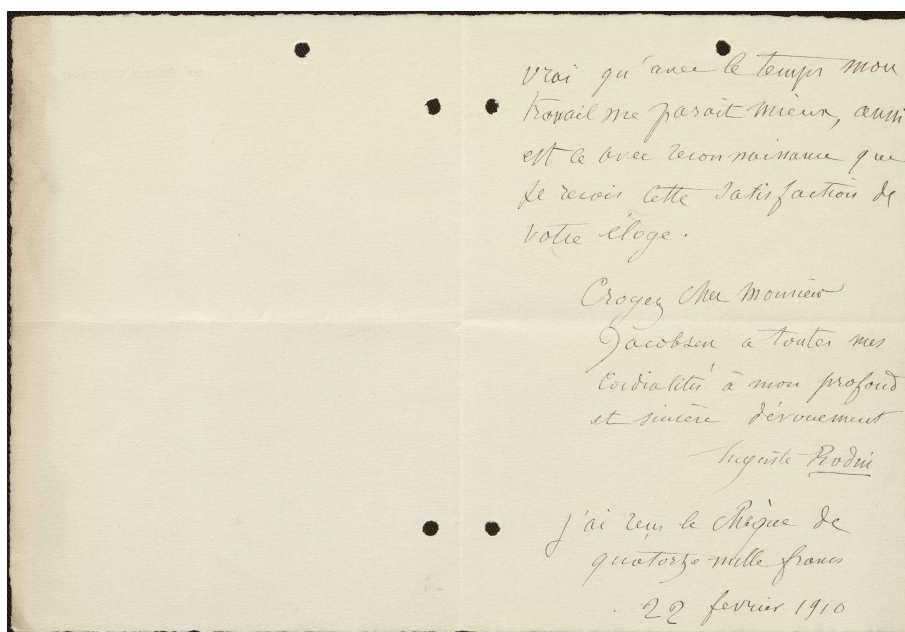 vrai qu'avec le temps mon
travail me parait mieux, aussi
est ce avec reconnaissance que
je reçois cette satisfaction de
votre éloge.
Croyez cher Monsieur
Jacobsen a toutes mes
Cordialités à mon profond
et sincère dévouement
Auguste Rodin
j'ai reçu le chèque de
quatorze mille francs
22 fevrier 1910